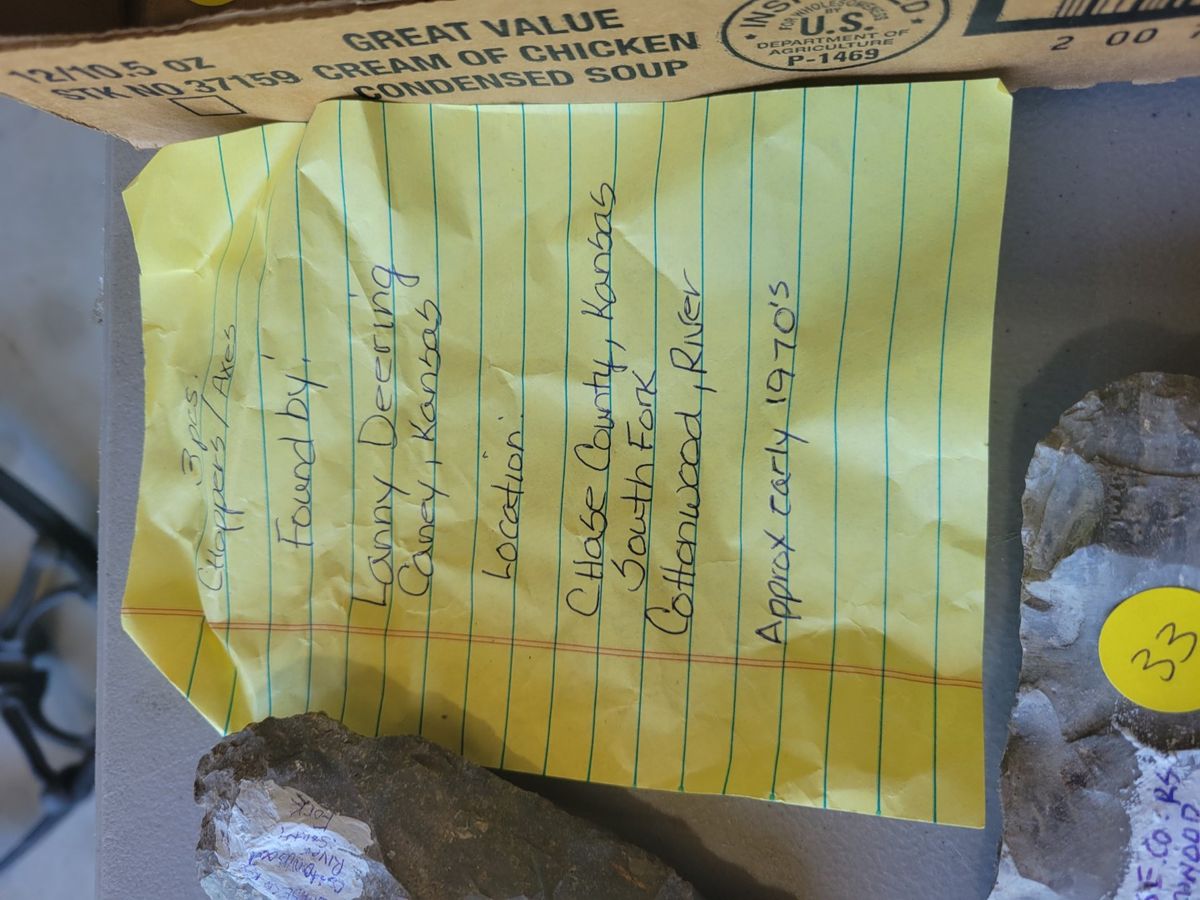 12/10.5 OZ
STK NO 37159
GREAT VALUE
CREAM OF CHICKEN
CONDENSED SOUP
FOR WHOLESOMENESS
BY
U.S.
DEPARTMENT OF
AGRICULTURE
P-1469
2 00
3 pcs.
CHoppers / Axes
Found by:
Lanny Deering
Caney, Kansas
Location:
CHase County, Kansas
South Fork
Cottonwood, River
Approx early 1970's
33
E.CO. KS
RIVER
SOUTH
FORK